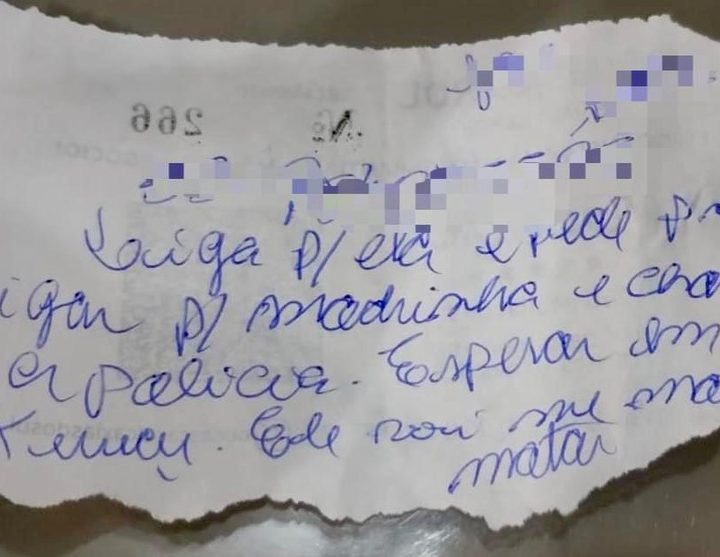 Nº 266
Liga p/ ela e pede pr
igar p/ madrinha e cha
a policia. Esperar em
Ele vai me ma
matar